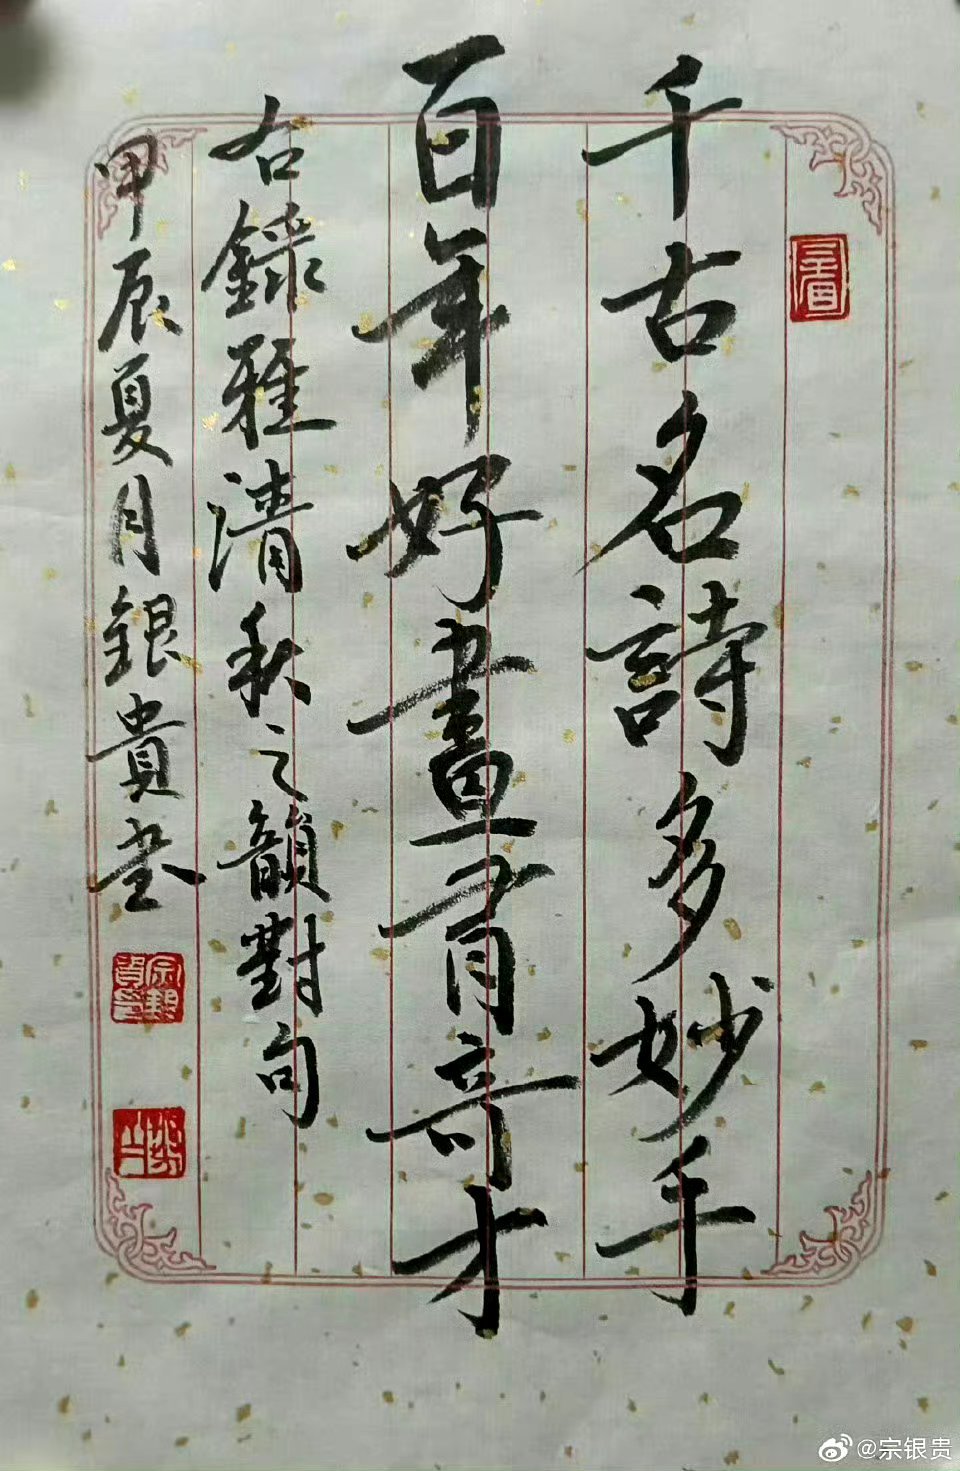 千古名詩多妙手
百年好畫有奇才
右錄雅清秋之韻對句
甲辰夏月銀貴書
@宗银贵